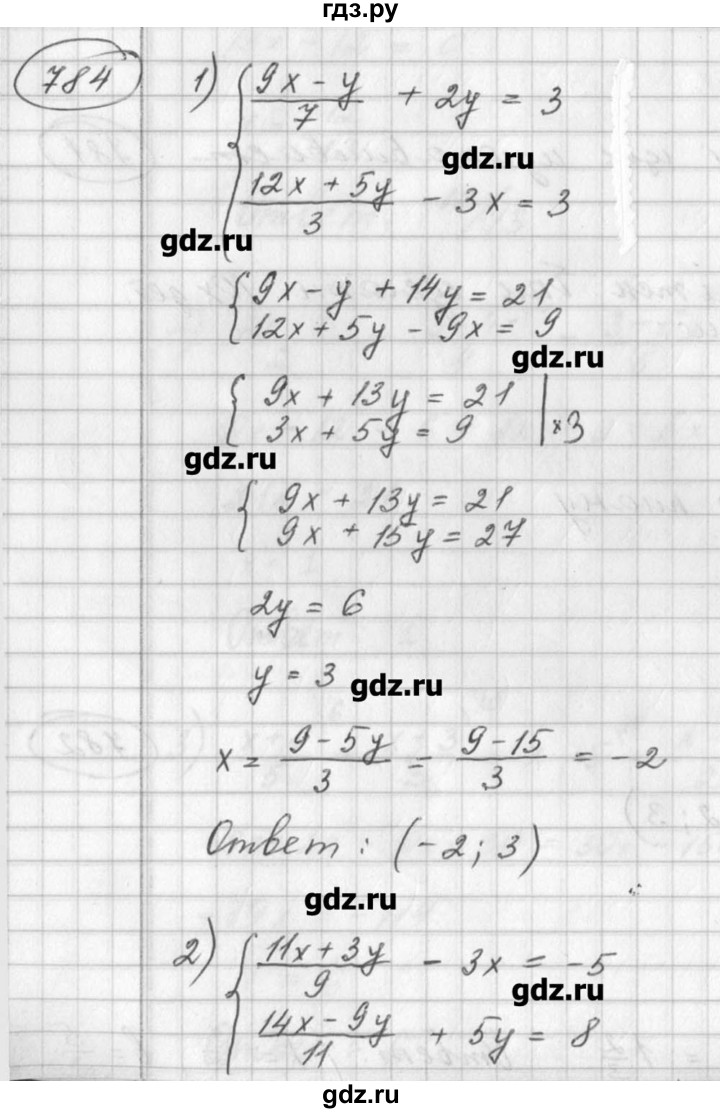 гдз.ру
784
1) { (9x − y)/7 + 2y = 3
gdz.ru
(12x + 5y)/3 − 3x = 3
gdz.ru
{ 9x − y + 14y = 21
12x + 5y − 9x = 9
gdz.ru
{ 9x + 13y = 21
3x + 5y = 9 | ×3
gdz.ru
{ 9x + 13y = 21
9x + 15y = 27
2y = 6
y = 3
gdz.ru
x = (9 − 5y)/3 = (9 − 15)/3 = −2
Ответ: (−2; 3)
gdz.ru
2) { (11x + 3y)/9 − 3x = −5
gdz.ru
(14x − 9y)/11 + 5y = 8
gdz.ru